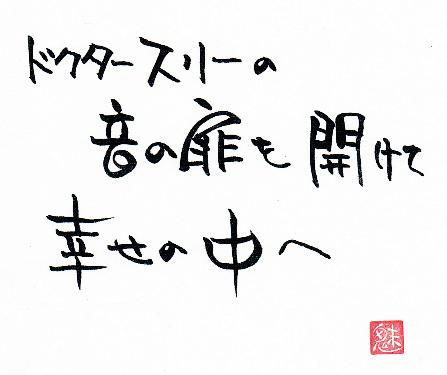 ドクタースリーの
音の扉を開けて
幸せの中へ
魅